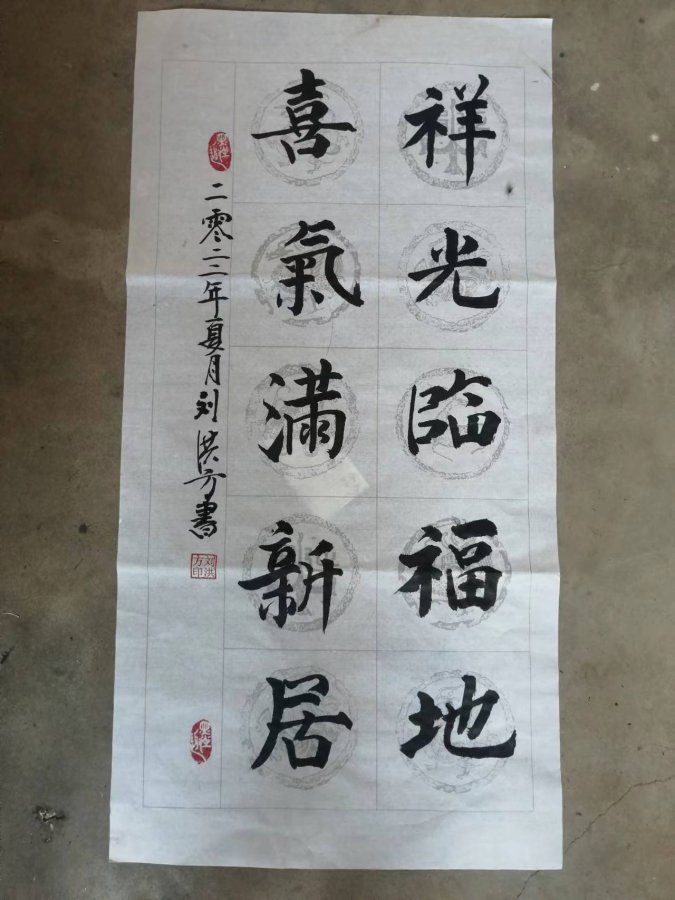 祥光臨福地
喜氣滿新居
二零二二年夏月刘洪方書
刘洪
方印